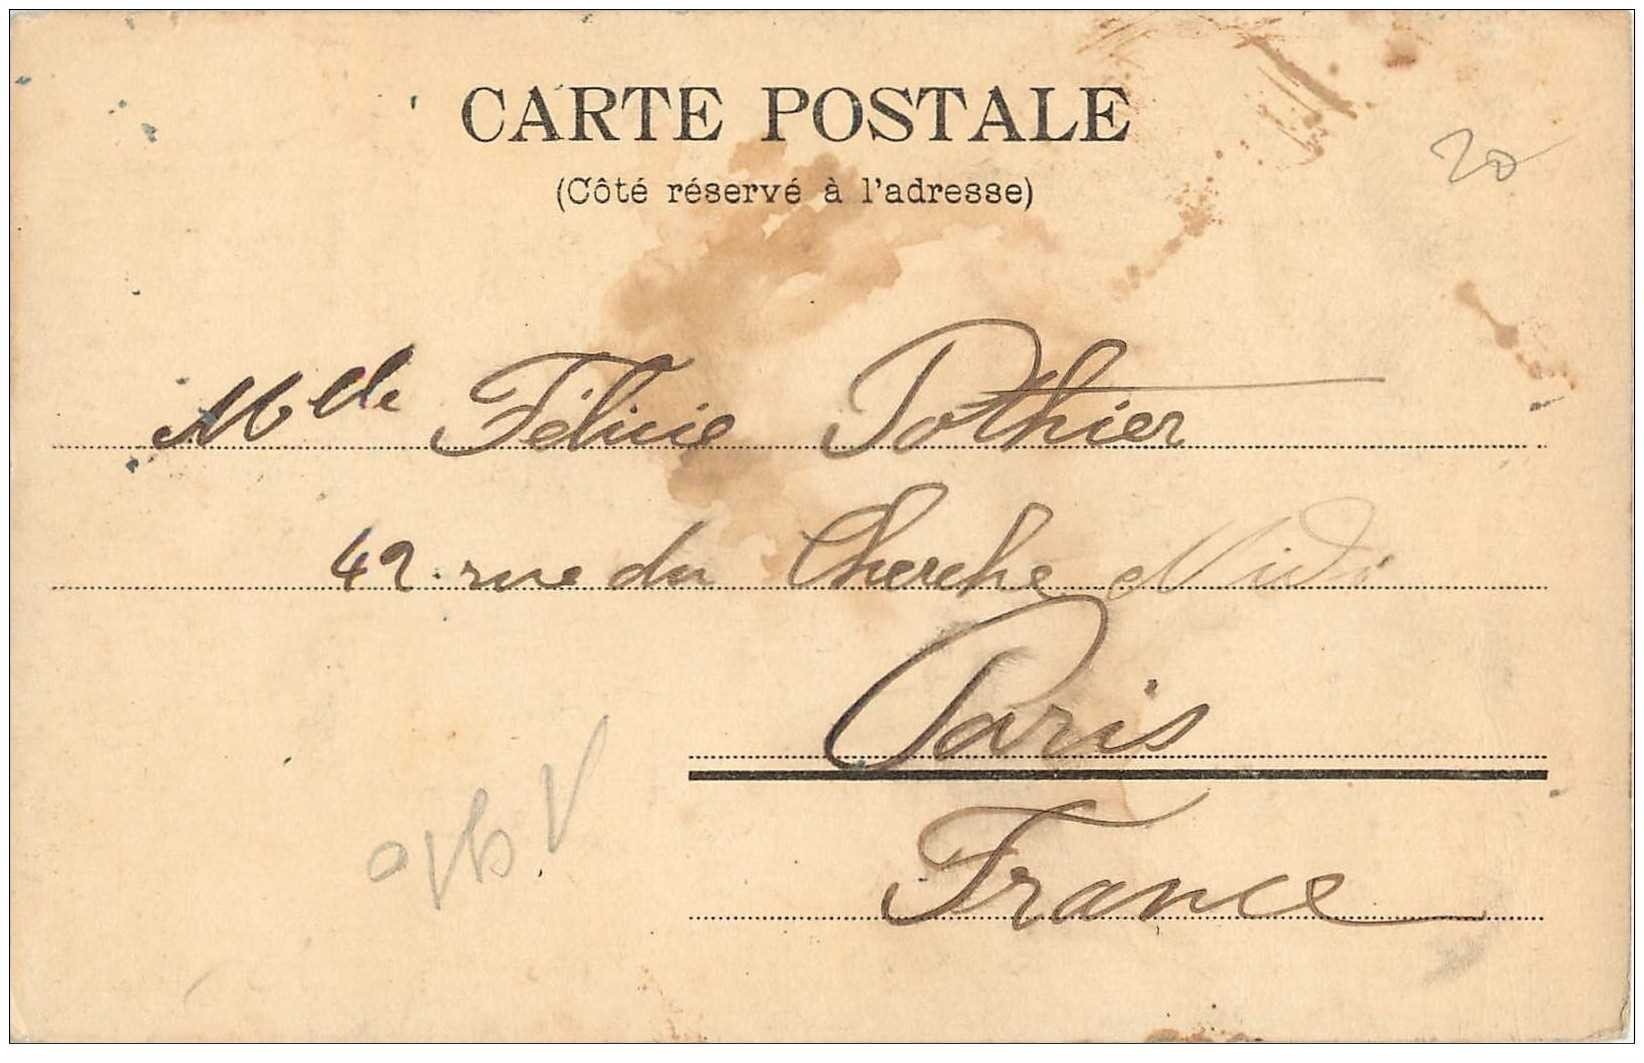 CARTE POSTALE
(Côté réservé à l'adresse)
20
Mlle Félicie Pothier
42 rue du Cherche Midi
Paris
France